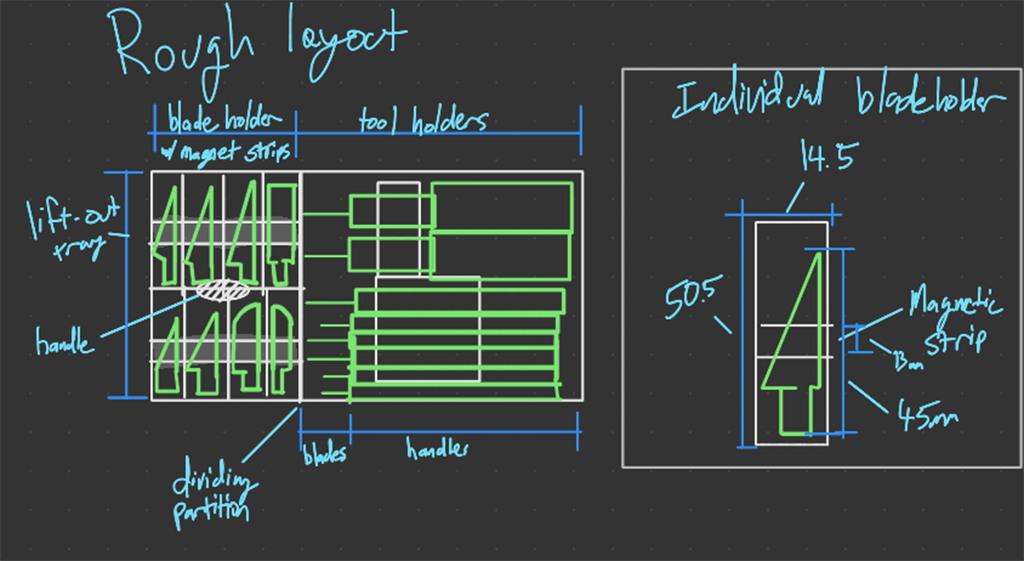 Rough layout
blade holder
w/ magnet strips
tool holders
lift-out
tray
handle
dividing
partition
blades
handles
Individual bladeholder
14.5
50.5
Magnetic
strip
13mm
45mm